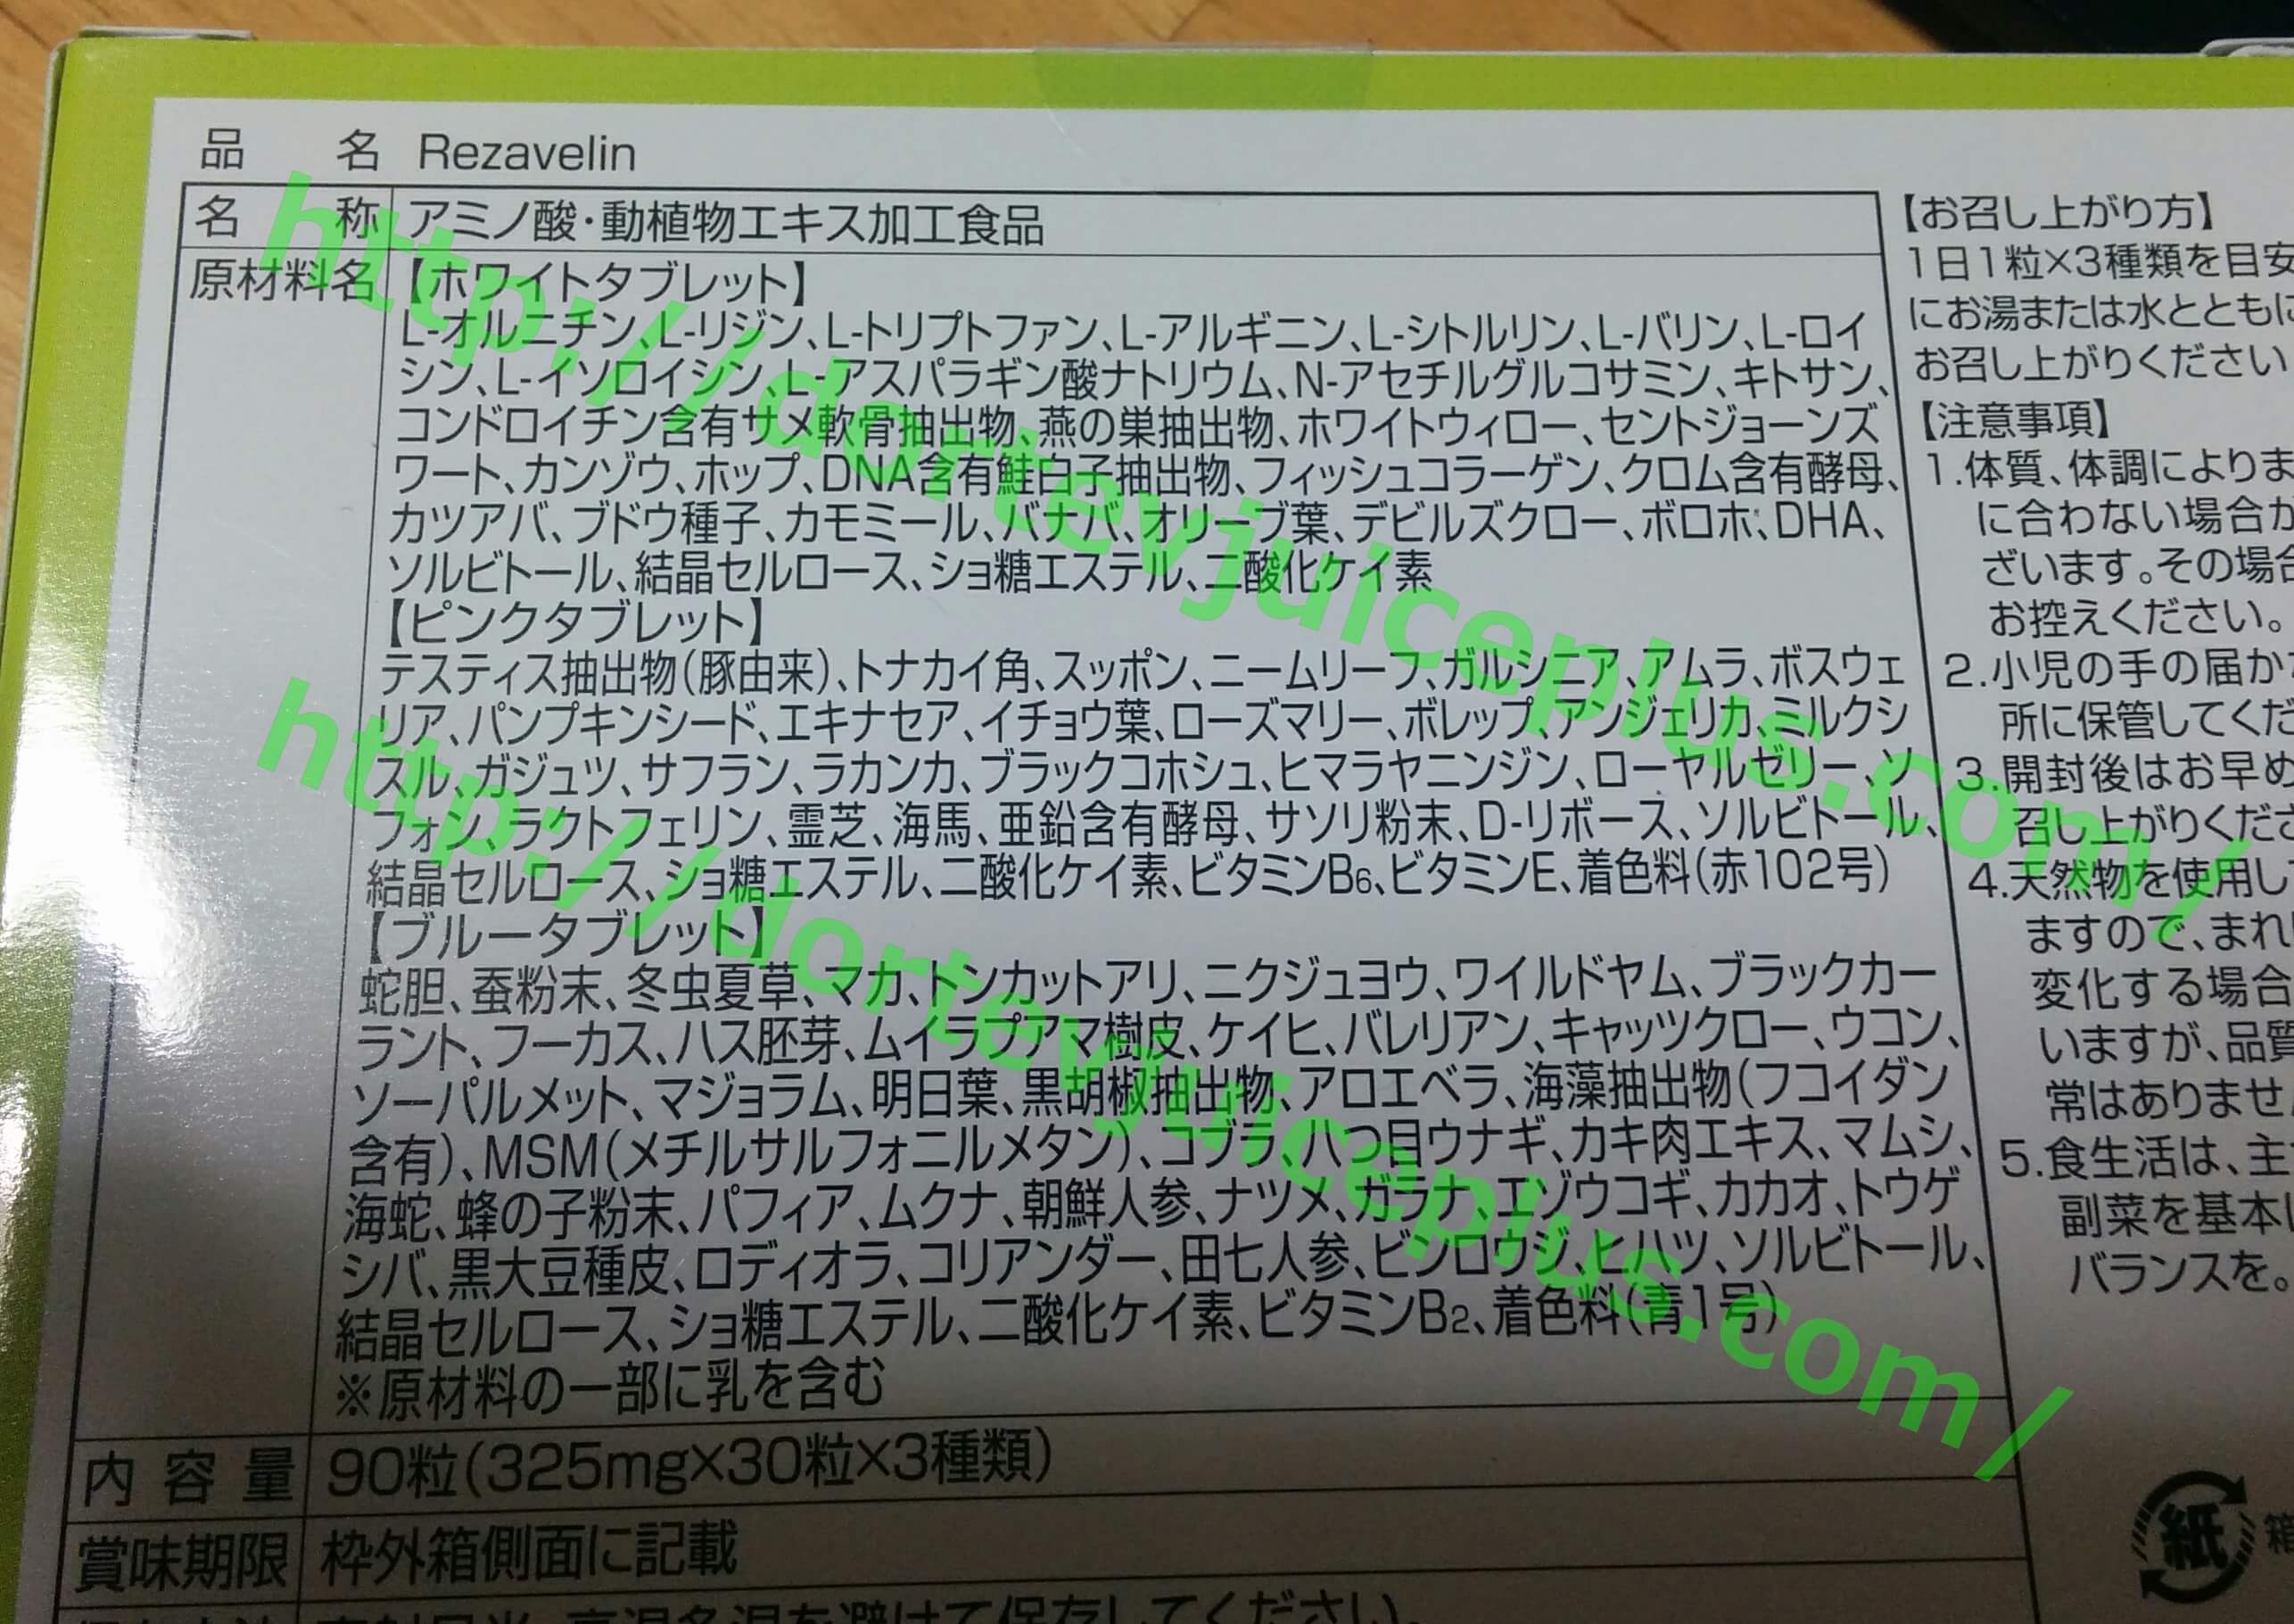 品名 Rezavelin
名称 アミノ酸・動植物エキス加工食品
原材料名 【ホワイトタブレット】
L-オルニチン、L-リジン、L-トリプトファン、L-アルギニン、L-シトルリン、L-バリン、L-ロイ
シン、L-イソロイシン、L-アスパラギン酸ナトリウム、N-アセチルグルコサミン、キトサン、
コンドロイチン含有サメ軟骨抽出物、燕の巣抽出物、ホワイトウィロー、セントジョーンズ
ワート、カンゾウ、ホップ、DNA含有鮭白子抽出物、フィッシュコラーゲン、クロム含有酵母、
カツアバ、ブドウ種子、カモミール、バナバ、オリーブ葉、デビルズクロー、ボロホ、DHA、
ソルビトール、結晶セルロース、ショ糖エステル、二酸化ケイ素
【ピンクタブレット】
テスティス抽出物(豚由来)、トナカイ角、スッポン、ニームリーフ、ガルシニア、アムラ、ボスウェ
リア、パンプキンシード、エキナセア、イチョウ葉、ローズマリー、ボレップ、アンジェリカ、ミルクシ
スル、ガジュツ、サフラン、ラカンカ、ブラックコホシュ、ヒマラヤニンジン、ローヤルゼリー、ソ
フォン、ラクトフェリン、霊芝、海馬、亜鉛含有酵母、サソリ粉末、D-リボース、ソルビトール、
結晶セルロース、ショ糖エステル、二酸化ケイ素、ビタミンB6、ビタミンE、着色料(赤102号)
【ブルータブレット】
蛇胆、蚕粉末、冬虫夏草、マカ、トンカットアリ、ニクジュヨウ、ワイルドヤム、ブラックカー
ラント、フーカス、ハス胚芽、ムイラプアマ樹皮、ケイヒ、バレリアン、キャッツクロー、ウコン、
ソーパルメット、マジョラム、明日葉、黒胡椒抽出物、アロエベラ、海藻抽出物(フコイダン
含有)、MSM(メチルサルフォニルメタン)、コブラ、八つ目ウナギ、カキ肉エキス、マムシ、
海蛇、蜂の子粉末、パフィア、ムクナ、朝鮮人参、ナツメ、ガラナ、エゾウコギ、カカオ、トウゲ
シバ、黒大豆種皮、ロディオラ、コリアンダー、田七人参、ビンロウジ、ヒハツ、ソルビトール、
結晶セルロース、ショ糖エステル、二酸化ケイ素、ビタミンB2、着色料(青1号)
※原材料の一部に乳を含む
内容量 90粒(325mg×30粒×3種類)
賞味期限 枠外箱側面に記載
高温多湿を避けて保存してください。
【お召し上がり方】
1日1粒×3種類を目安
にお湯または水とともに
お召し上がりください
【注意事項】
1.体質、体調によりま
に合わない場合が
ざいます。その場合
お控えください。
2.小児の手の届か
所に保管してくだ
3.開封後はお早め
召し上がりくださ
4.天然物を使用し
ますので、まれ
変化する場合
いますが、品質
常はありませ
5.食生活は、主
副菜を基本
バランスを。
紙 箱
http://dortevjuiceplus.com/
http://dortevjuiceplus.com/